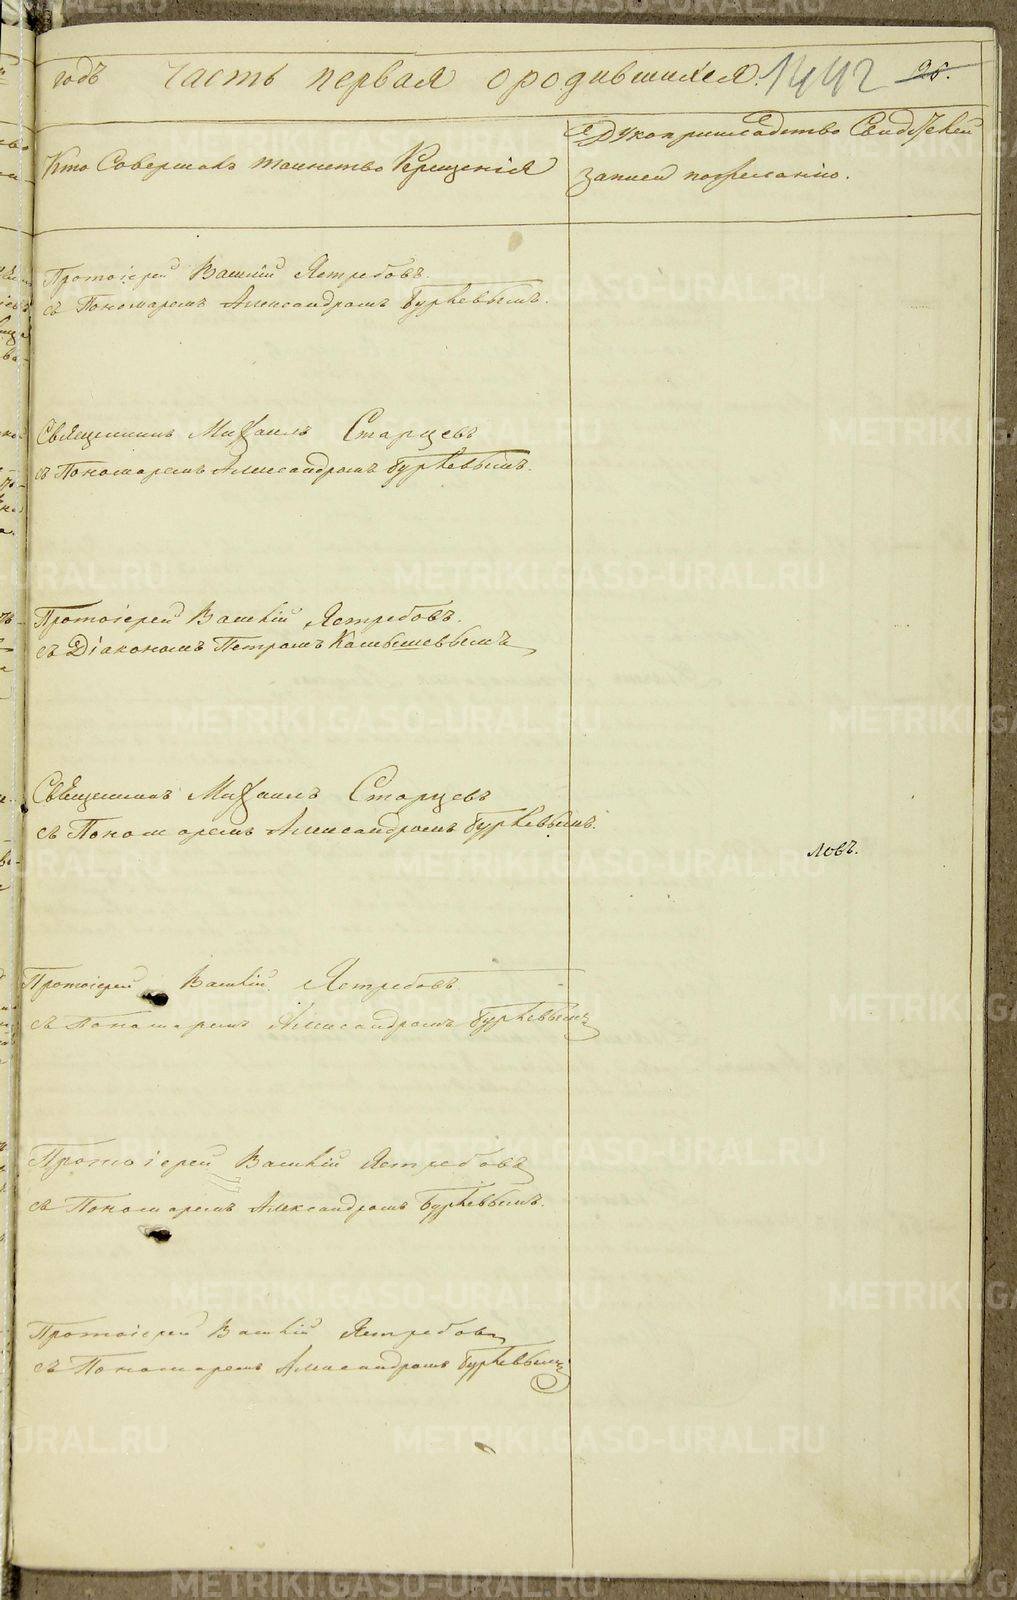 годъ часть первая о родившихся. 1442 96.
Кто Совершалъ таинство Крещенія
Рукоприкладство Свидѣтелей
записи по желанію.
Протоіерей Василій Ястребовъ.
съ Пономаремъ Александромъ Бурневымъ.
Священникъ Михаилъ Старцевъ
съ Пономаремъ Александромъ Бурневымъ.
Протоіерей Василій Ястребовъ.
съ Діакономъ Петромъ Камышевымъ
Священникъ Михаилъ Старцевъ
съ Пономаремъ Александромъ Бурневымъ.
ловъ.
Протоіерей Василій Ястребовъ
съ Пономаремъ Александромъ Бурневымъ
Протоіерей Василій Ястребовъ
съ Пономаремъ Александромъ Бурневымъ.
Протоіерей Василій Ястребовъ
съ Пономаремъ Александромъ Бурневымъ
METRIKI.GASO-URAL.RU